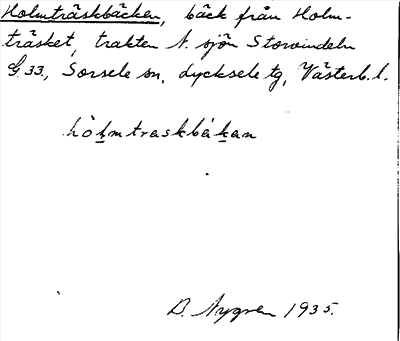 Holmträskbäcken, bäck från Holm-
träsket, trakten N. sjön Storvindeln
G. 33, Sorsele sn, Lycksele tg, Västerb. l.
hòlmtraskbákan
D. Nygren 1935.